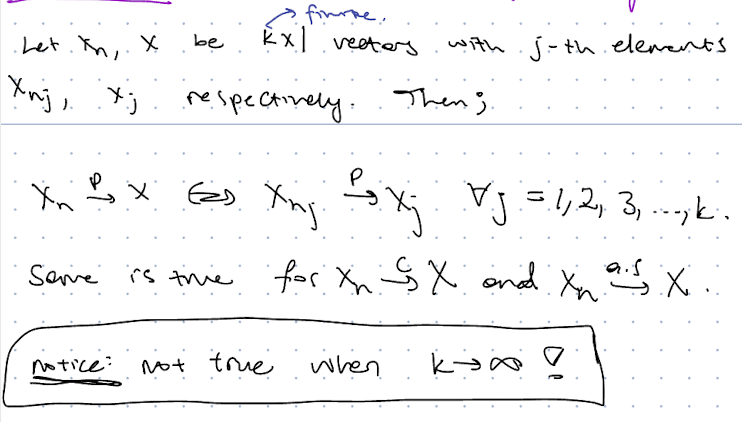 finite.
Let Xn, X be k×1 vectors with j-th elements
Xnj, Xj respectively. Then;
Xn →p X ⇔ Xnj →p Xj ∀j = 1, 2, 3, ..., k.
Same is true for Xn →c X and Xn →a.s X.
notice: not true when k→∞ !